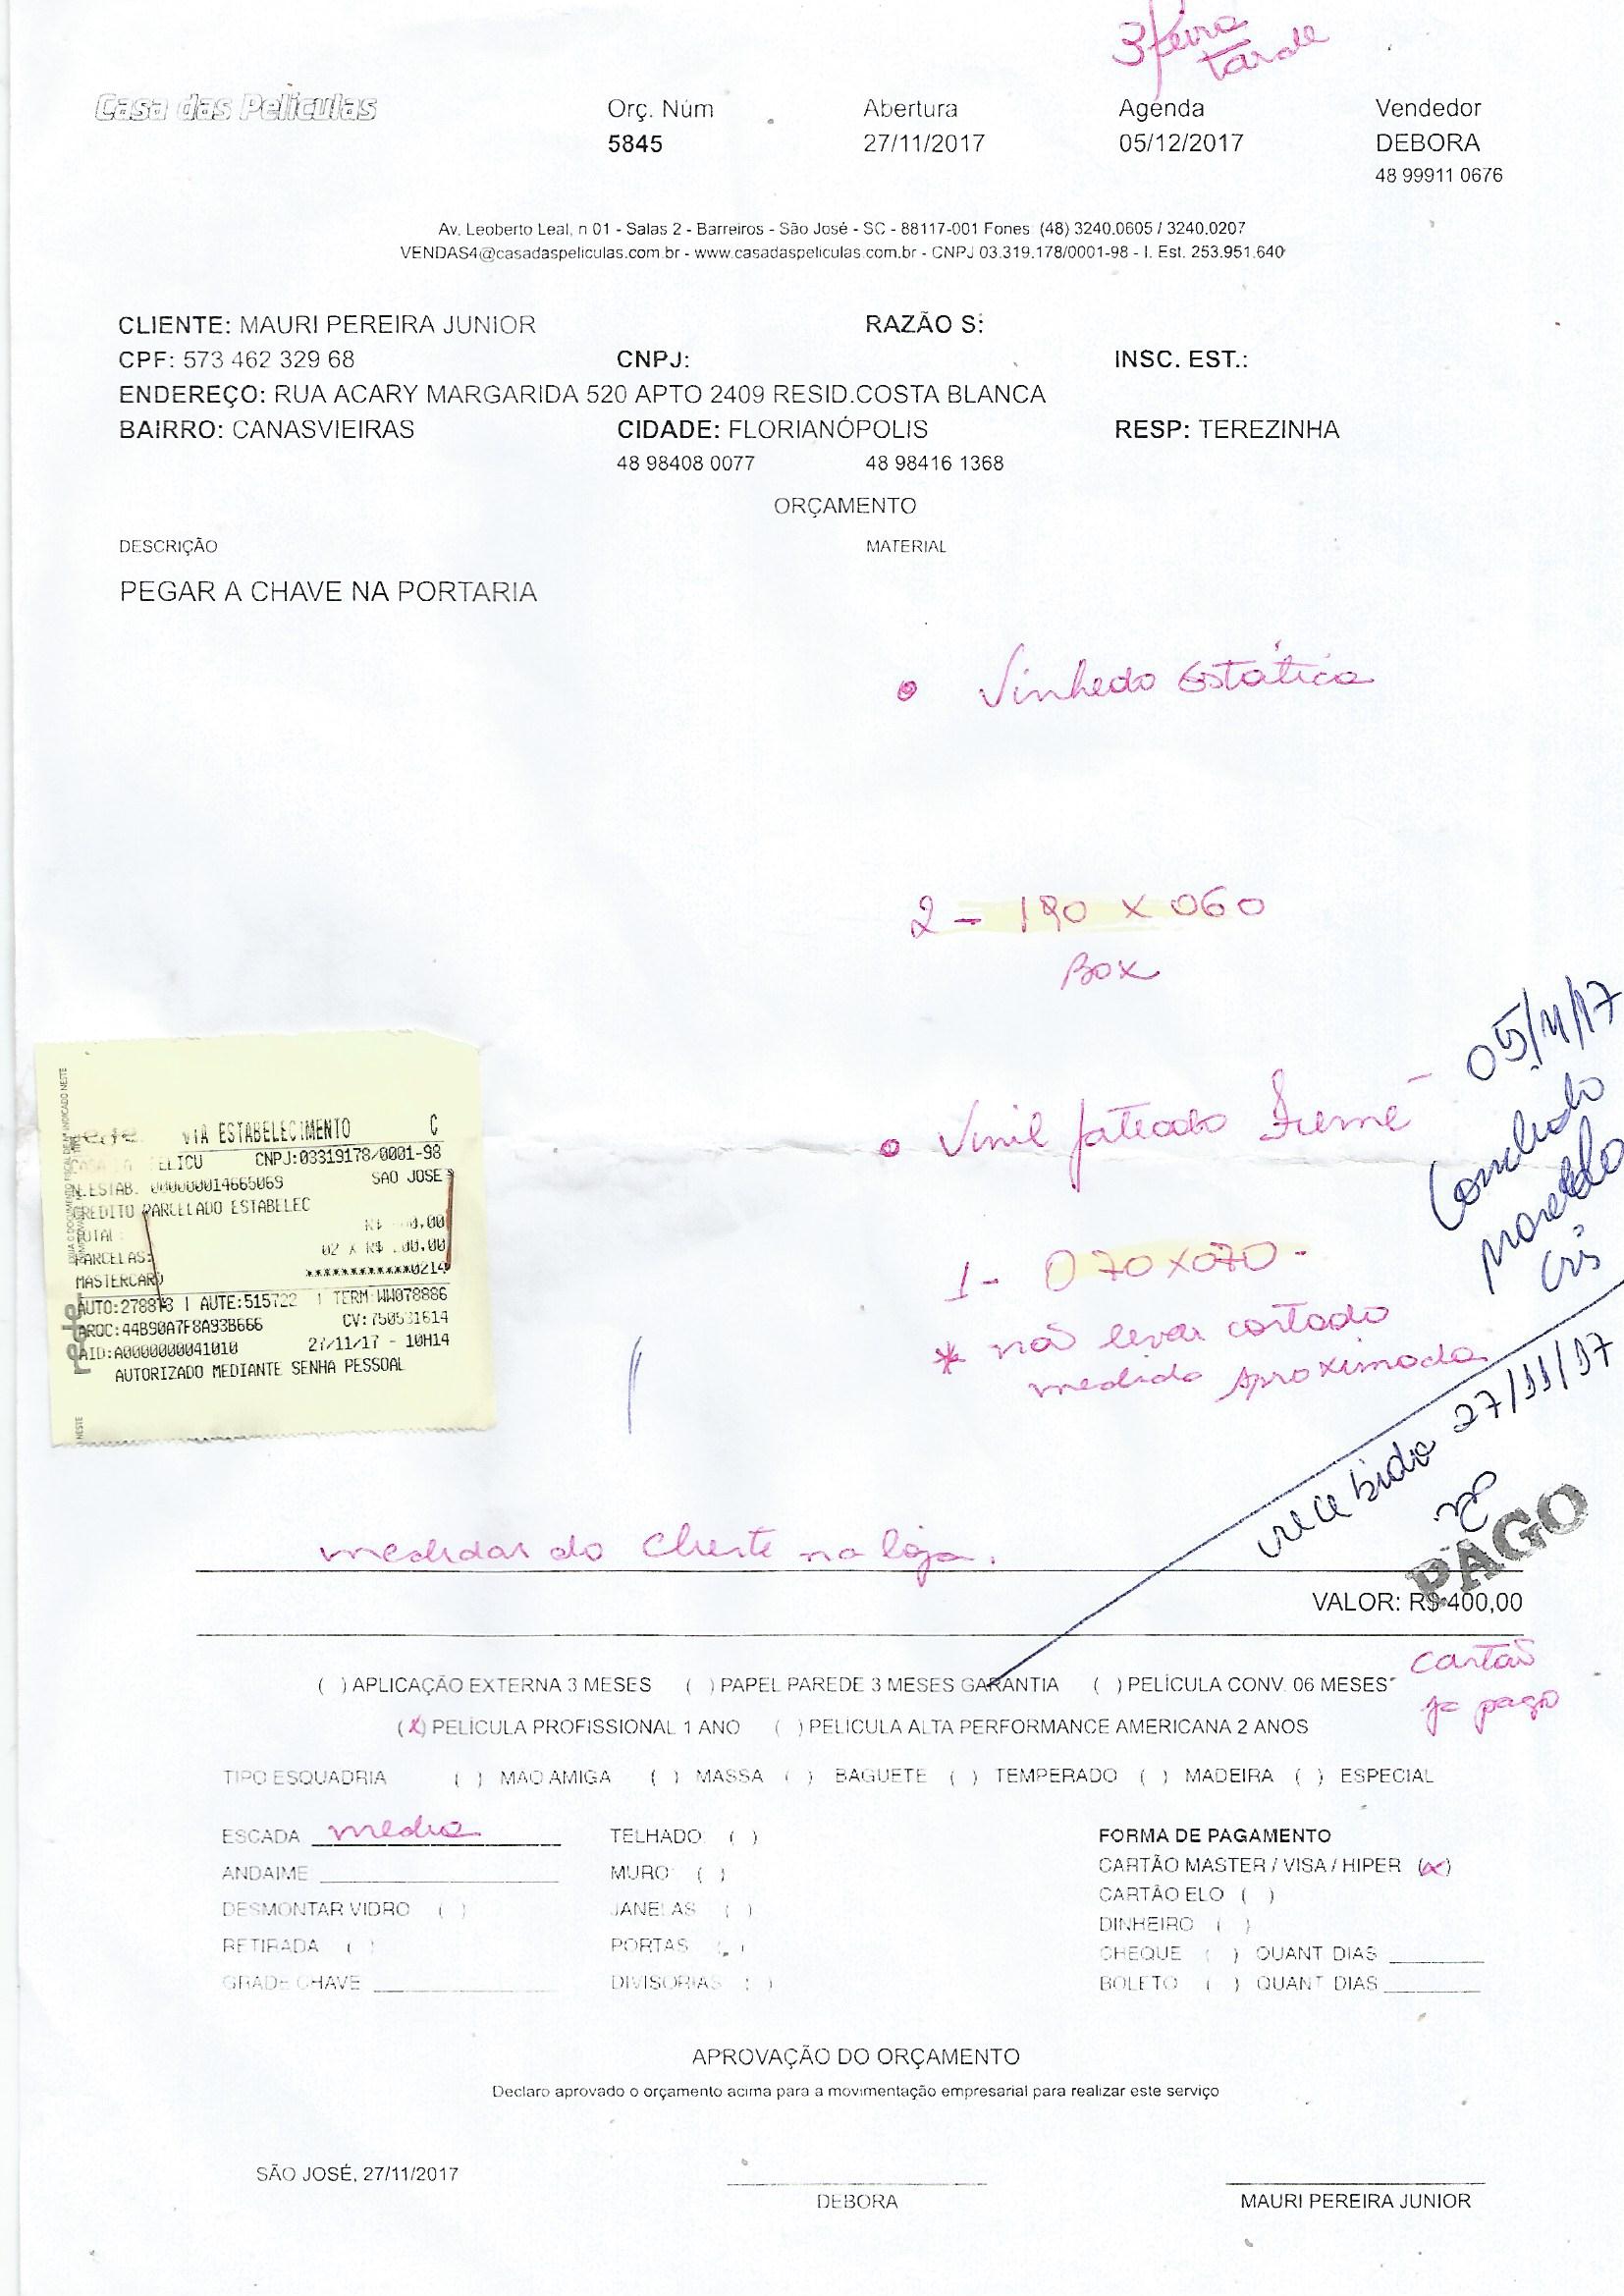 3ª feira
tarde
Casa das Películas
Orç. Núm Abertura Agenda Vendedor
5845 27/11/2017 05/12/2017 DEBORA
48 99911 0676
Av. Leoberto Leal, n 01 - Salas 2 - Barreiros - São José - SC - 88117-001 Fones: (48) 3240.0605 / 3240.0207
VENDAS4@casadaspeliculas.com.br - www.casadaspeliculas.com.br - CNPJ 03.319.178/0001-98 - I. Est. 253.951.640
CLIENTE: MAURI PEREIRA JUNIOR RAZÃO S:
CPF: 573 462 329 68 CNPJ: INSC. EST.:
ENDEREÇO: RUA ACARY MARGARIDA 520 APTO 2409 RESID.COSTA BLANCA
BAIRRO: CANASVIEIRAS CIDADE: FLORIANÓPOLIS RESP: TEREZINHA
48 98408 0077 48 98416 1368
ORÇAMENTO
DESCRIÇÃO MATERIAL
PEGAR A CHAVE NA PORTARIA
• Vinhedo Estática
2 - 190 X 060
BOX
• Vinil Jateado
05/11/17
Concluído
Cris
1 - 070X070 -
* não levar cortado
medida Aproximada
VIA ESTABELECIMENTO C
CNPJ:03319178/0001-98
N.ESTAB. 000000014665069 SAO JOSE
CREDITO PARCELADO ESTABELEC
TOTAL:
PARCELAS: 02 X R$
MASTERCARD ************0214
AUTO:278878 | AUTE:515722 | TERM:WW078886
ARQC:44B90A7F8A93B666 CV:750531614
AID:A0000000041010 27/11/17 - 10H14
AUTORIZADO MEDIANTE SENHA PESSOAL
recebido 27/11/17
PAGO
medidas do cliente na loja.
VALOR: R$ 400,00
cartão
já pago
( ) APLICAÇÃO EXTERNA 3 MESES ( ) PAPEL PAREDE 3 MESES GARANTIA ( ) PELÍCULA CONV. 06 MESES
(X) PELÍCULA PROFISSIONAL 1 ANO ( ) PELICULA ALTA PERFORMANCE AMERICANA 2 ANOS
TIPO ESQUADRIA ( ) MAO AMIGA ( ) MASSA ( ) BAGUETE ( ) TEMPERADO ( ) MADEIRA ( ) ESPECIAL
ESCADA media TELHADO ( ) FORMA DE PAGAMENTO
ANDAIME MURO ( ) CARTÃO MASTER / VISA / HIPER (x)
CARTÃO ELO ( )
DESMONTAR VIDRO ( ) JANELAS ( ) DINHEIRO ( )
RETIRADA ( ) PORTAS ( ) CHEQUE ( ) QUANT DIAS
GRADE CHAVE DIVISORIAS ( ) BOLETO ( ) QUANT DIAS
APROVAÇÃO DO ORÇAMENTO
Declaro aprovado o orçamento acima para a movimentação empresarial para realizar este serviço
SÃO JOSÉ, 27/11/2017
DEBORA MAURI PEREIRA JUNIOR